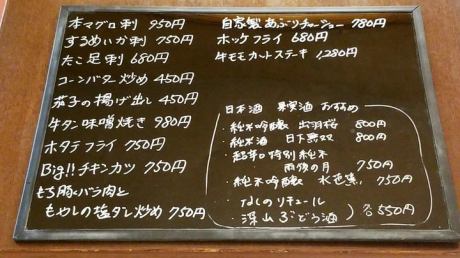 本マグロ刺 950円
するめいか刺 750円
たこ足刺 680円
コーンバター炒め 450円
茄子の揚げ出し 450円
牛タン味噌焼き 980円
ホタテフライ 750円
Big!! チキンカツ 750円
もち豚バラ肉と
もやしの塩ダレ炒め 750円
自家製あぶりチャーシュー 780円
ホッケフライ 680円
牛モモカットステーキ 1,280円
日本酒 果実酒 おすすめ
・純米吟醸 出羽桜 800円
・純米酒 日下無双 800円
・超辛口特別純米
雨後の月 750円
・純米吟醸 水芭蕉 750円
・のリキュール
・深山ぶどう酒 各550円